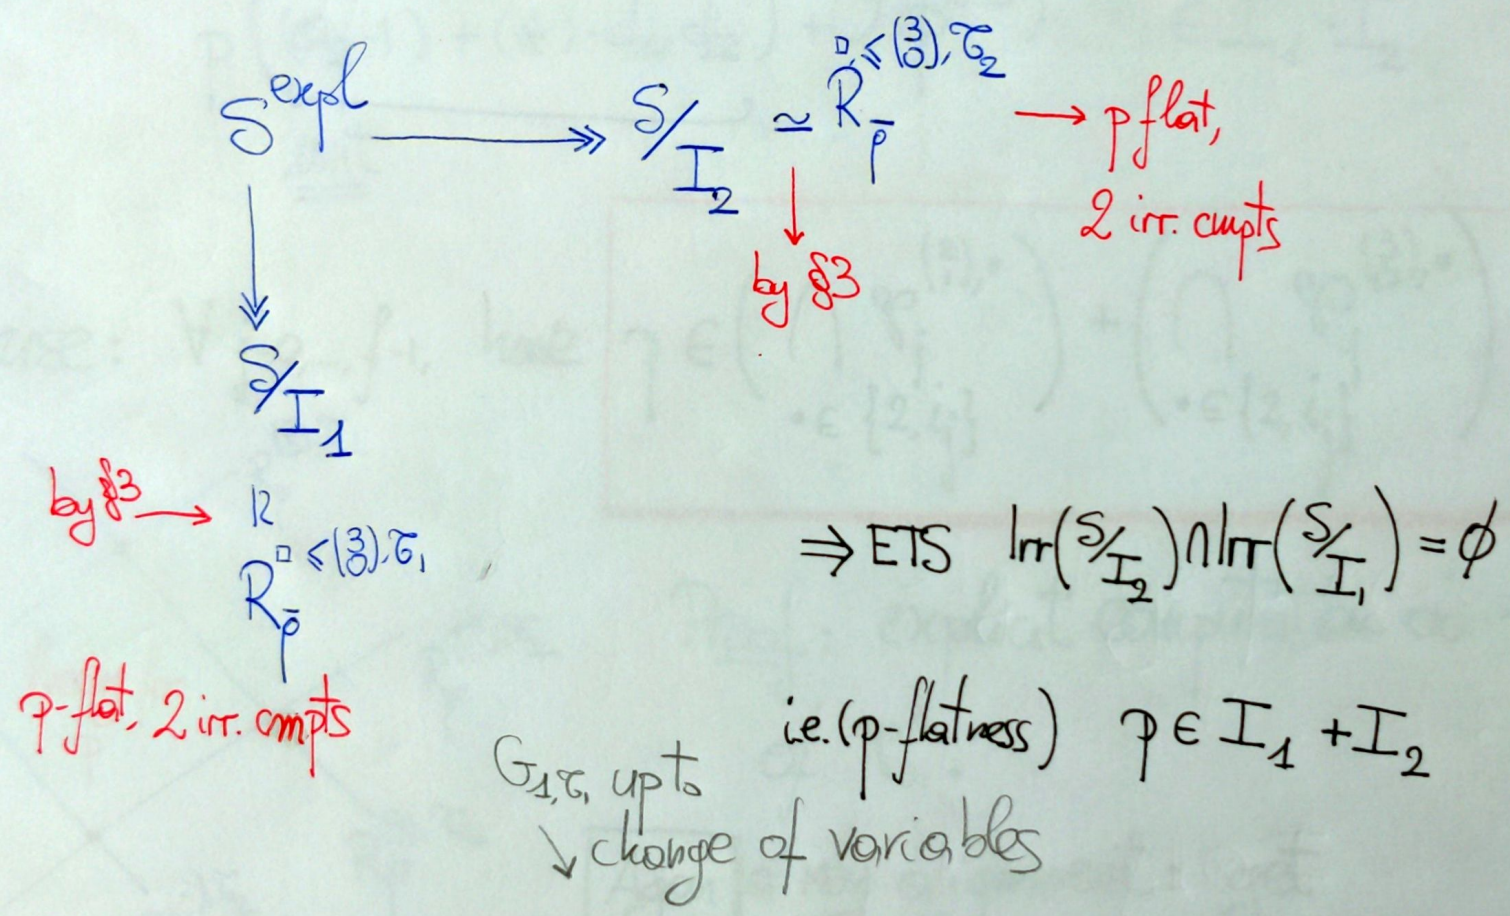 S^expl ↠ S/I_2 ≃ R_ρ̄^{□, ≤(3 0), τ_2} → p flat,
2 irr. cmpts
↓
by §3
↓
S/I_1
by §3 → ≀≀
R_ρ̄^{□ ≤(3 0), τ_1}
p-flat, 2 irr. cmpts
⇒ ETS Irr(S/I_2) ∩ Irr(S/I_1) = ∅
i.e. (p-flatness) p ∈ I_1 + I_2
G_{1,τ_1} up to
↘ change of variables